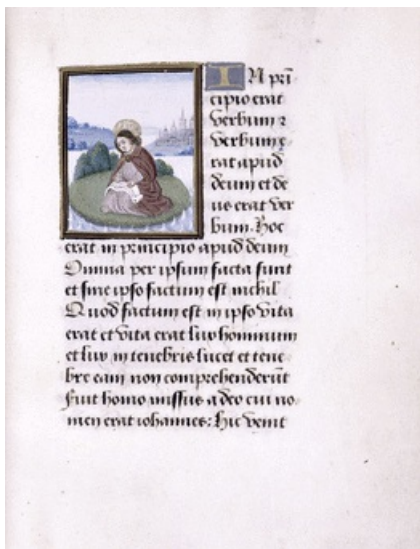 IN pri̅
cipio erat
verbum ⁊
verbum e
rat apud
deum et de
us erat ver
bum. Hoc
erat in principio apud deum
Omnia per ipsum facta sunt
et sine ipso factum est nichil
Quod factum est in ipso vita
erat et vita erat lux hominum
et lux in tenebris lucet et tene
bre eam non comprehenderu̅t
Fuit homo missus a deo cui no
men erat iohannes: Hic venit